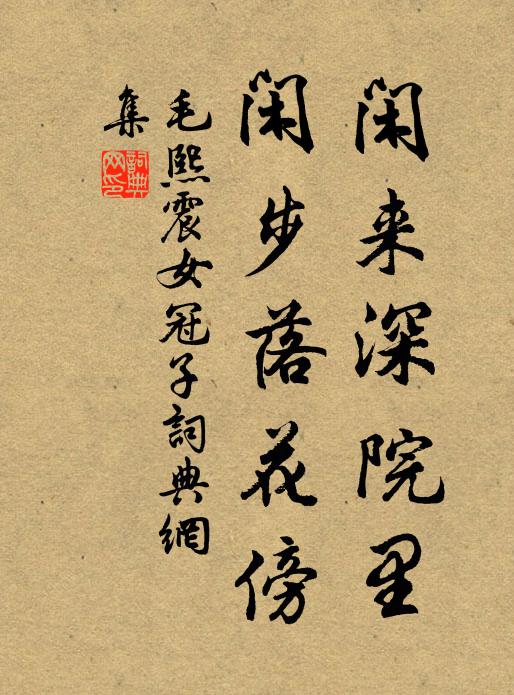 闲来深院里
闲步落花傍
毛熙震女冠子詞典網
集
詞典
网印